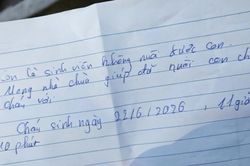 con là sinh viên không nuôi được con.
Mong nhà chùa giúp đỡ nuôi con
cháu với
Cháu sinh ngày 22/6/2026, 11 giờ
phút